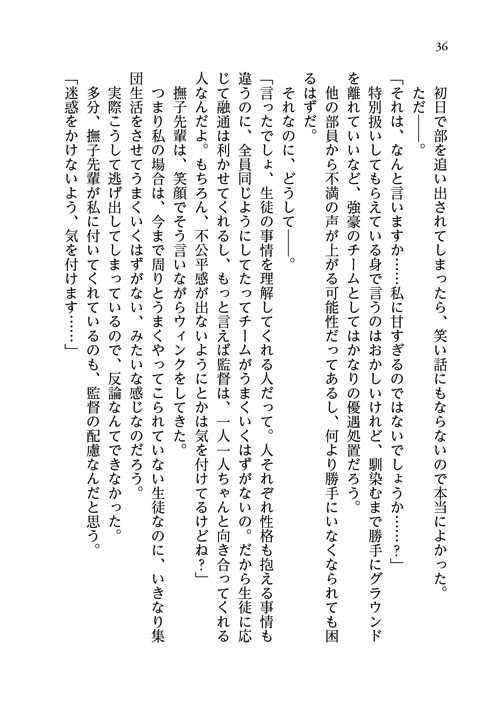 36
初日で部を追い出されてしまったら、笑い話にもならないので本当によかった。
ただ――。
「それは、なんと言いますか……私に甘すぎるのではないでしょうか……？」
特別扱いしてもらえている身で言うのはおかしいけれど、馴染むまで勝手にグラウンド
を離れていいなど、強豪のチームとしてはかなりの優遇処置だろう。
他の部員から不満の声が上がる可能性だってあるし、何より勝手にいなくなられても困
るはずだ。
それなのに、どうして――。
「言ったでしょ、生徒の事情を理解してくれる人だって。人それぞれ性格も抱える事情も
違うのに、全員同じようにしてたってチームがうまくいくはずがないの。だから生徒に応
じて融通は利かせてくれるし、もっと言えば監督は、一人一人ちゃんと向き合ってくれる
人なんだよ。もちろん、不公平感が出ないようにとかは気を付けてるけどね？」
撫子先輩は、笑顔でそう言いながらウィンクをしてきた。
つまり私の場合は、今まで周りとうまくやってこられていない生徒なのに、いきなり集
団生活をさせてうまくいくはずがない、みたいな感じなのだろう。
実際こうして逃げ出してしまっているので、反論なんてできなかった。
多分、撫子先輩が私に付いてくれているのも、監督の配慮なんだと思う。
「迷惑をかけないよう、気を付けます……」